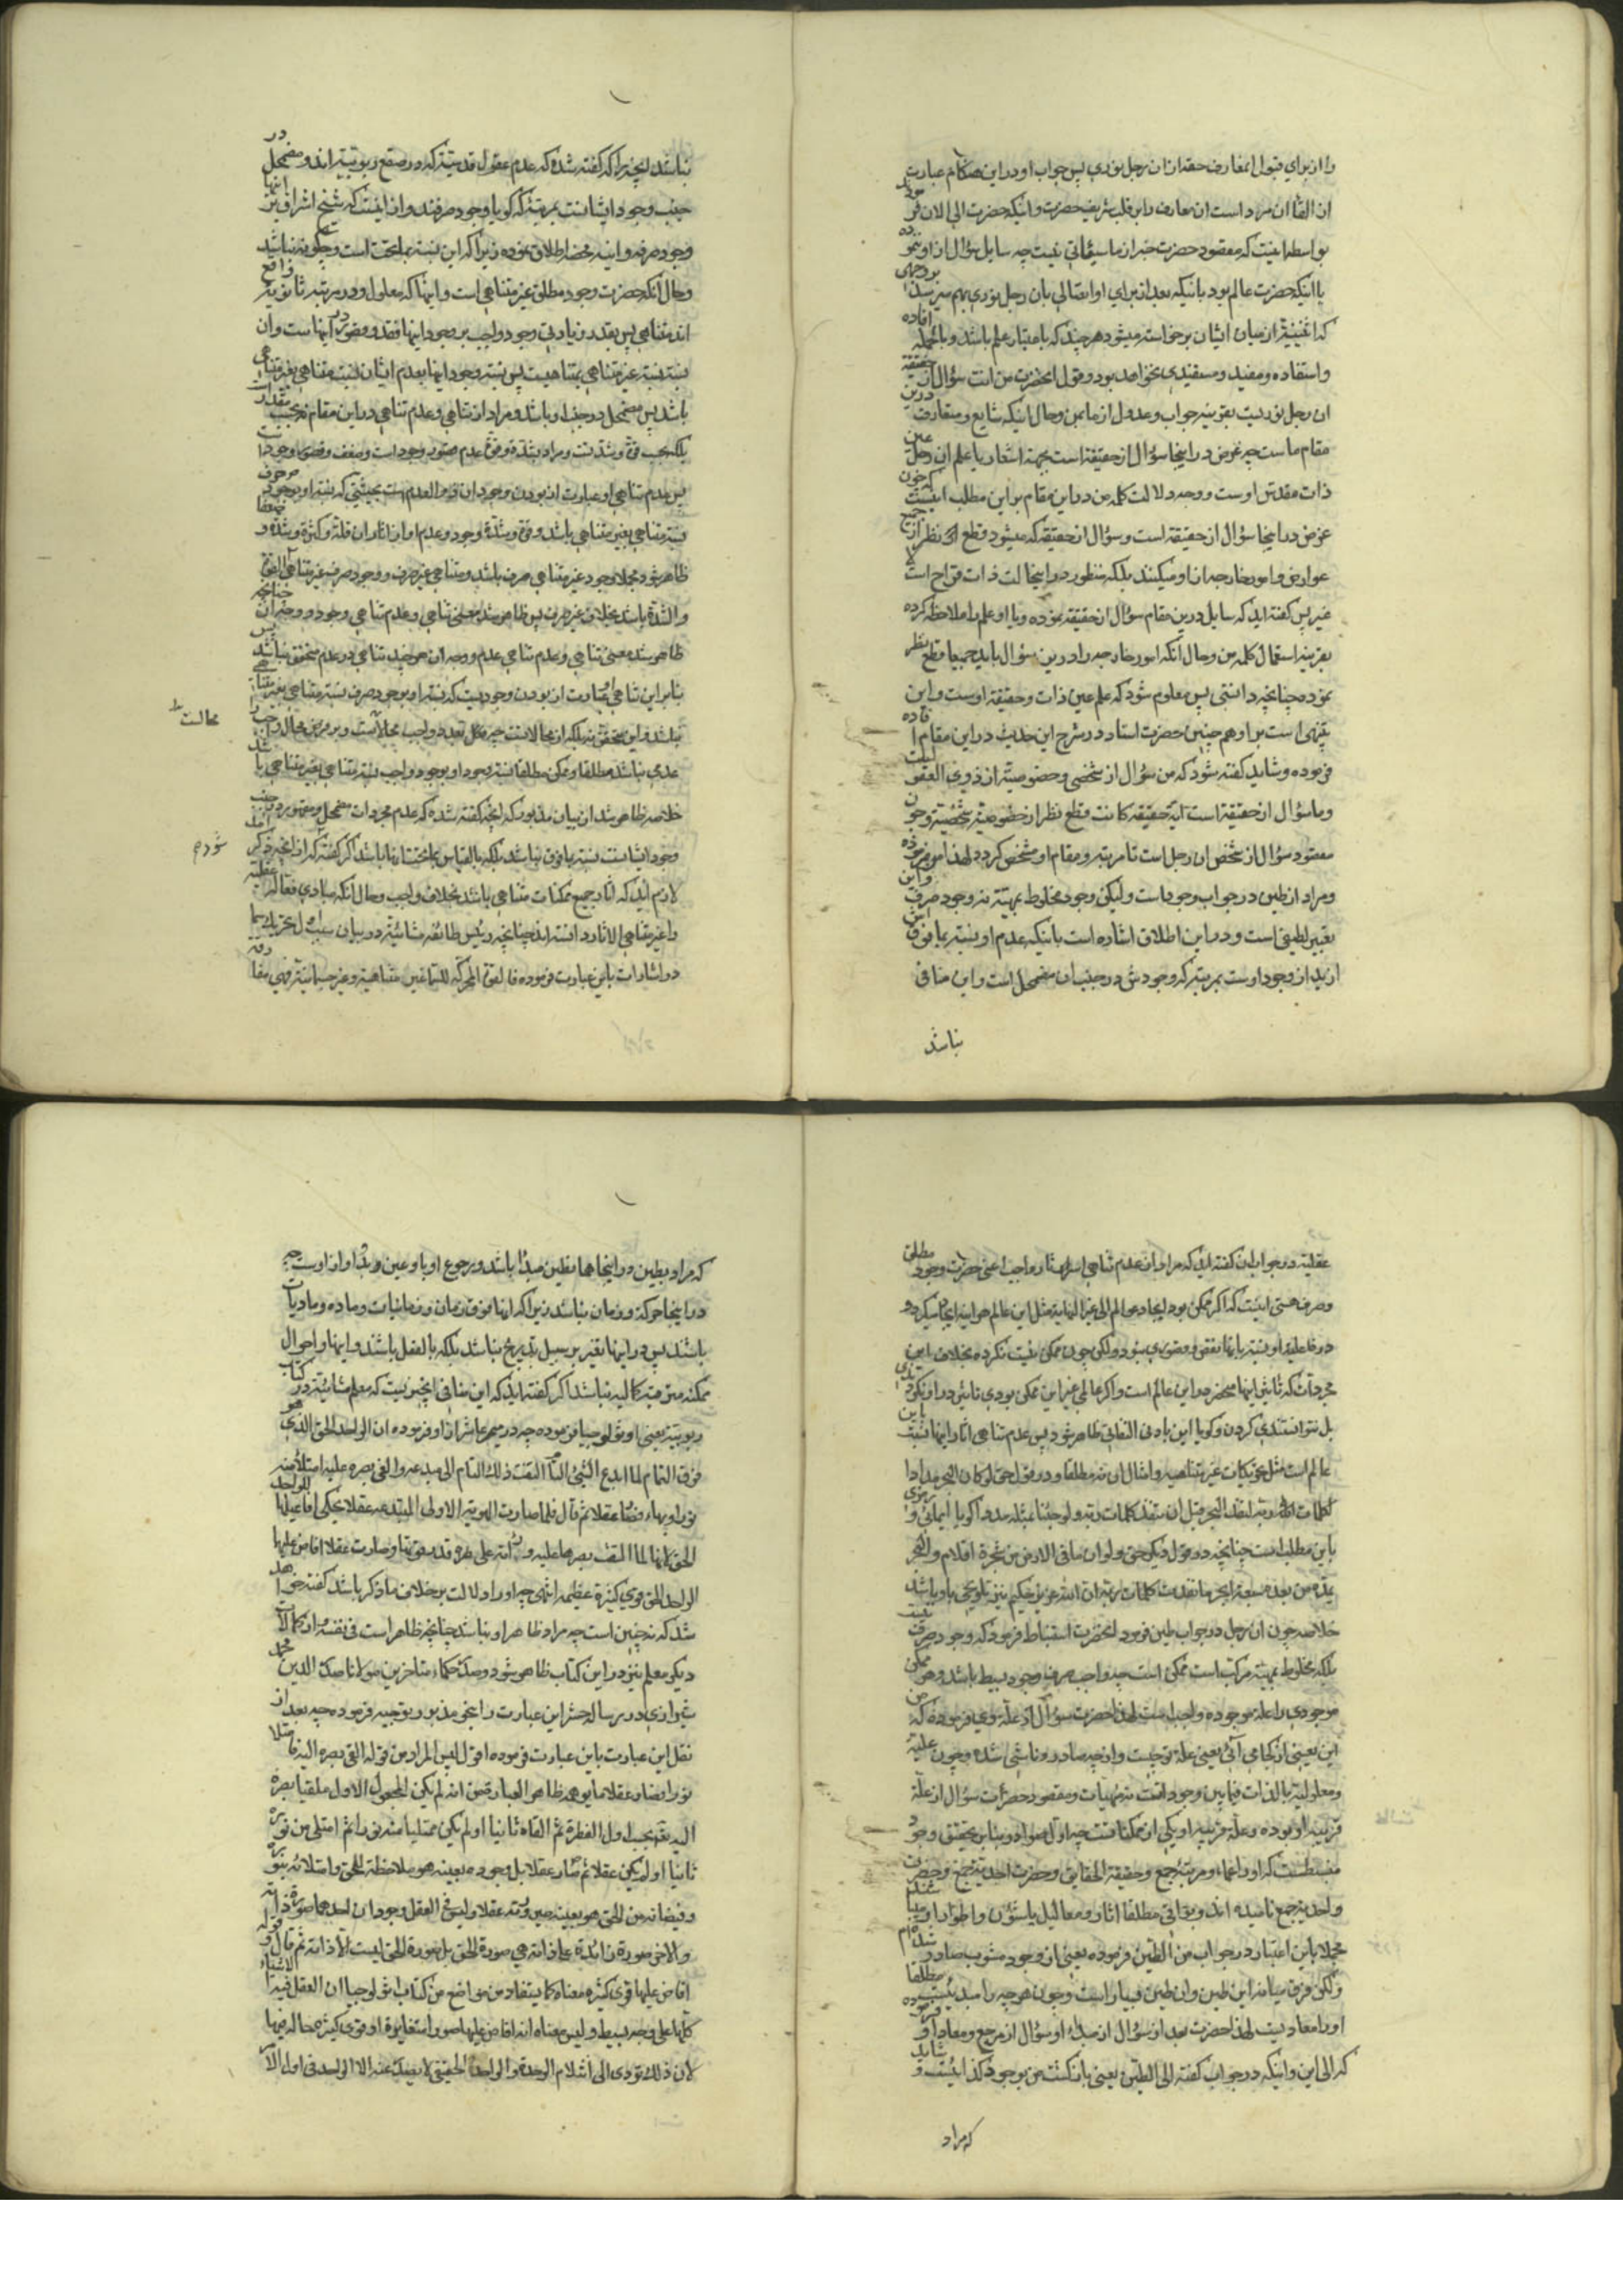 را از برای قبول انمعارف حقه از ان رجل بودی پس جواب او در این هنکام عبارت
از القا ان مراد است ان معارف را بر قلب شریف حضرت و اینکه حضرت الی الان
بواسطه اینست که مقصود حضرت خبر از ما سیأتی نیست چه سایل سؤال از او نموده
با اینکه حضرت عالم بود باینکه بعد از برای او اتصالی بان رجل بودی بهم میرسد
که اثنینیة از میان ایشان برخواسته میشود هر چند که باعتبار علم باشد و بالجمله افاده
و استفاده و مفید و مستفیدی نخواهد بود و قول انحضرت من انت سؤال از حقیقة
ان رجل بودیست بقرینه جواب و عدول از ما بمن وحال اینکه شایع و متعارف درین
مقام ماست چه غرض در اینجا سؤال از حقیقة است بجهة اشعار با علم ان رجل عین
ذات مقدس اوست و وجه دلالت کلمه من در این مقام بر این مطلب اینست که چون
غرض در اینجا سؤال از حقیقة است و سؤال از حقیقة که میشود قطع نظر از جمیع
عوارض و امور خارجه از او میکنند بلکه منظور در اینحالت ذات قراح است لا
غیر پس کفته اید که سایل درین مقام سؤال از حقیقة نموده و با او علم را ملاحظه کرده
بقرینه استعمال کلمه من وحال انکه امور خارجه را در این سؤال باید جمیعا قطع نظر
نموده چنانچه دانستی پس معلوم شود که علم عین ذات و حقیقة اوست و این
تنبهی است بر او هم چنین حضرت استاد در شرح این حدیث در این مقام افاده
فرموده و شاید کفته شود که من سؤال از شخصی و خصوصیة از ذوی العقول است
و ما سؤال از حقیقة است ایة حقیقة کانت قطع نظر از خصوصیة و شخصیة و چون
مقصود سؤال از شخص ان رجل است تا مرتبه و مقام او مشخص کردد لهذا من فرموده
و مراد از طین در جواب وجود است و لیکن وجود مخلوط بمهیّة نه وجود صرف و این
تعبیر لطیفی است و در این اطلاق اشاره است باینکه عدم او نسبة بما فوق این
ازید از وجود اوست بمرتبه که وجودش در جنب ان مضمحل است و این منافی
نباشد
نباشد انچیزی را که کفته شده که عدم عقول قدسیّة که در صقع ربوبیّة اند و مضمحل در
جنب وجود ایشانست بمرتبه که کویا وجود صرفند و از اینست که شیخ اشراق بر اینها
وجود صرفه و انیة محضه اطلاق نموده زیرا که این نسبة بما تحت است و چکونه نباشد
وحال انکه حضرت وجود مطلق غیر متناهی است و اینها که معلول و در مرتبه ثانویّة واقع
اند متناهی پس بقدر زیادتی وجود واجب بر وجود اینها فقد و قصور در اینهاست وان
نسبة نسبة غیر متناهی بمتناهیست پس نسبة وجود اینها بعدم ایشان نسبت متناهی بغیر متناهی
باشد پس مضمحل در جنب او باشد و مراد از تناهی و عدم تناهی در این مقام نه بحسب مقدارست
بلکه بحسب قوّة و شدّتست و مراد بشدّة و قوّة عدم قصور وجود است و ضعف و قصور وجود
پس عدم تناهی او عبارت از بودن وجود ان و را لعدم است بحیثیتی که نسبة او بوجود صرف
نسبة متناهی بغیر متناهی باشد و قوّة و شدّة وجود و عدم او از اثار ان قلة و کثرة و شدّة و ضعفا
ظاهر شود و مجلا وجود غیر متناهی صرف باشد و متناهی غیر صرف و وجود صرف غیر متناهی القوّة
والشدّة باشد بخلاف غیر صرف پس ظاهر شد معنی تناهی و عدم تناهی وجود و وجه ان چنانچه
ظاهر شد معنی تناهی و عدم تناهی عدم و وجه ان هر چند تناهی در عدم متحقق نباشد پس
بنابر این تناهی او عبارت از بودن وجودیست که نسبة او بوجود صرف نسبة متناهی بغیر متناهی
نباشد و این متحقق نه بلکه از محالاتست چه مثل تعدد واجب محالاست و بر فرض محال واجب را
محالست ظ
عدمی نباشد مطلقا و ممکن مطلقا نسبة وجود او بوجود واجب نسبة متناهی بغیر متناهی باشد
خلاصه ظاهر شد از بیان مذبور که انچه کفته شده که عدم مجردات مضمحل و مقهور در جنب
وجود ایشانست نسبة بما فوق نباشد بلکه بالقیاس بما تحتشان باشد اکر کفته که از انچه ذکر شد
شود م
لازم اید که اثار جمیع ممکنات متناهی باشد بخلاف واجب وحال انکه مبادی فعاله عقلیة
را غیر متناهی الاثار دانسته اند چنانچه رئیس طائفه مشائیّة در بیان سبب اول تحریک سما
در اشارات باین عبارت فرموده فالقوة المحرکه للسّماء غیر متناهیة و غیر جسمانیّة فهی مفارقة
عقلیّة در جواب ان کفته اید که مراد بان عدم تناهی اسرار اثار واجب اعنی حضرت وجود مطلق
و صرف هستی اینست که اکر ممکن بود ایجاد عوالم الی غیر النهایه مثل این عالم هر اینه ایجاد میکرد و
در فاعلیة او نسبة باینها نقص و قصوری نبود ولکن چون ممکن نیست نکرده بخلاف این
مجردات که تاثیر اینها منحصره در این عالم است و اکر عالمی غیر این ممکن بودی تاثیر در او نکردندی
بل نتوانستندی کردن و کویا این بادنی التفاتی ظاهر شود پس عدم تناهی اثار اینها نسبت باین
عالم است مثل حرکات غیر متناهیه و امثال او نه مطلقا و در قول حق لو کان البحر مدادا
لکلمات ربّی لنفد البحر قبل ان تنفد کلمات ربّی ولو جئنا بمثله مددا کویا ایمائی و رمزی
باین مطلب است چنانچه در قول دیکر حق ولو ان ما فی الارض من شجرة اقلام والبحر
یمدّه من بعده سبعة ابحر ما نفدت کلمات ربّه ان الله عزیز حکیم نیز تلویحی باو باشد
خلاصه چون ان رجل در جواب طین فرمود انحضرت استنباط فرمود که وجود صرف نیست
بلکه مخلوط بمهیّة مرکب است ممکن است چه واجب صرف وجود بسیط باشد و هر ممکن
موجودی را علة موجوده واجب است لهذا حضرت سؤال از علة وی فرموده که من
این یعنی از کجا می آئی یعنی علة تو چیست و از چه صادر و ناشی شده و چون علیّة
و معلولیّة بالذات فیما بین وجوداتست نه مهیّات و مقصود حضرت سؤال از علّة
قریبه او بوده و علّة قریبه او یکی از ممکناتست چه اول صوادر بنابر تحقیق وجود
منبسطست که او را عماء و مرتبه جمع و حقیقة الحقایق و حضرت احدیّة جمع و حضرت
واحدیة جمع نامیده اند و بواقی مطلقا اثار و معالیل یا شئون و اطوار او میباشند
مجملا باین اعتبار در جواب من الطّین فرموده یعنی از وجود مشوب صادر شده ام
ولکن فرق میانه این طین و ان طین بسیار است و چون هر چه را مبدئیست مطلقا
او را معادیست لهذا حضرت بعد از سؤال از مبدأ او سؤال از مرجع و معاد او فرموده
که الی این و اینکه در جواب کفته الی الطّین یعنی بازکشت من بوجود کذا اییست و شاید
که مراد
که مراد بطین در اینجا همان طین مبدأ باشد و رجوع او باو عین بدو او از اوست چه
در اینجا حرکة و زمان نباشد زیرا که اینها فوق زمان و زمانیات و ماده و مادیاتند
باشند پس در اینها تغیر بر سبیل تدریج نباشد بلکه بالفعل باشند و اینها را احوال
ممکنه مترقبه کمالیه نباشد اکر کفته اید که این منافی انچیزیست که معلم مشائیّة در کتاب
ربوبیّة یعنی اوثولوجیا فرموده چه در میمر عاشر از او فرموده ان الواحد الحق الذی هو
فوق التمام لما ابدع الشئ التام التفت ذلک التام الی مبدعه والقی بصره علیه امتلأ منه
نورا وبهاء فصار عقلا ثم قال فلما صارت الهویّة الاولی المبتدعه عقلا یحکی افاعیلها للواحد
الحق لانها لما القت بصرها علیه و رأته علی قدر قوتها و صارت عقلا افاض علیها
الواحد الحق قوی کثیرة عظیمه انتهی چه او را دلالت بر خلاف ما ذکر باشد کفته خواهد
شد که نه چنین است چه مراد ظاهر او نباشد چنانچه ظاهر است فی نفسه از کمالات
دیکر معلم نیز در این کتاب ظاهر شود و صدر حکماء متاخرین مولانا صدر الدین محمد
شیرازی در رساله حشر این عبارت را بنحو مذبور توجیه فرموده چه بعد از
نقل این عبارت باین عبارت فرموده اقول لیس المراد من قوله القی بصره الیه فامتلا
نورا فصار عقلا ما یوهمه ظاهر العبارة من انه لم یکن المجعول الاول ملقیا بصره
الیه تعالی بحسب اول الفطرة ثم القاه ثانیا او لم یکن ممتلیا منه نورا ثم امتلی من نوره
ثانیا او لم یکن عقلا ثم صار عقلا بل وجوده بعینه هو ملاحظة للحق و امتلائه بنوره
و فیضانه من الحق هو بعینه صیرورته عقلا و لیس فی العقل وجودان احدهما صورة ذاته
والاخر صورة زائدة علی ذاته هی صورة الحق بل صورة الحق لیست الا ذاته ثم قال و قوله
افاض علیها قوی کثیره معناه کما یستفاد من مواضع من کتاب اثولوجیا ان العقل فیه الاشیاء
کلها علی وجه بسیط و لیس معناه انه افاض علیها صورا متغایرة او قوی کثیرة حالة فیها
لان ذلک یؤدی الی انثلام الوحدة والواحد الحقیقی لا یصدر عنه الا الواحد فی اول الامر